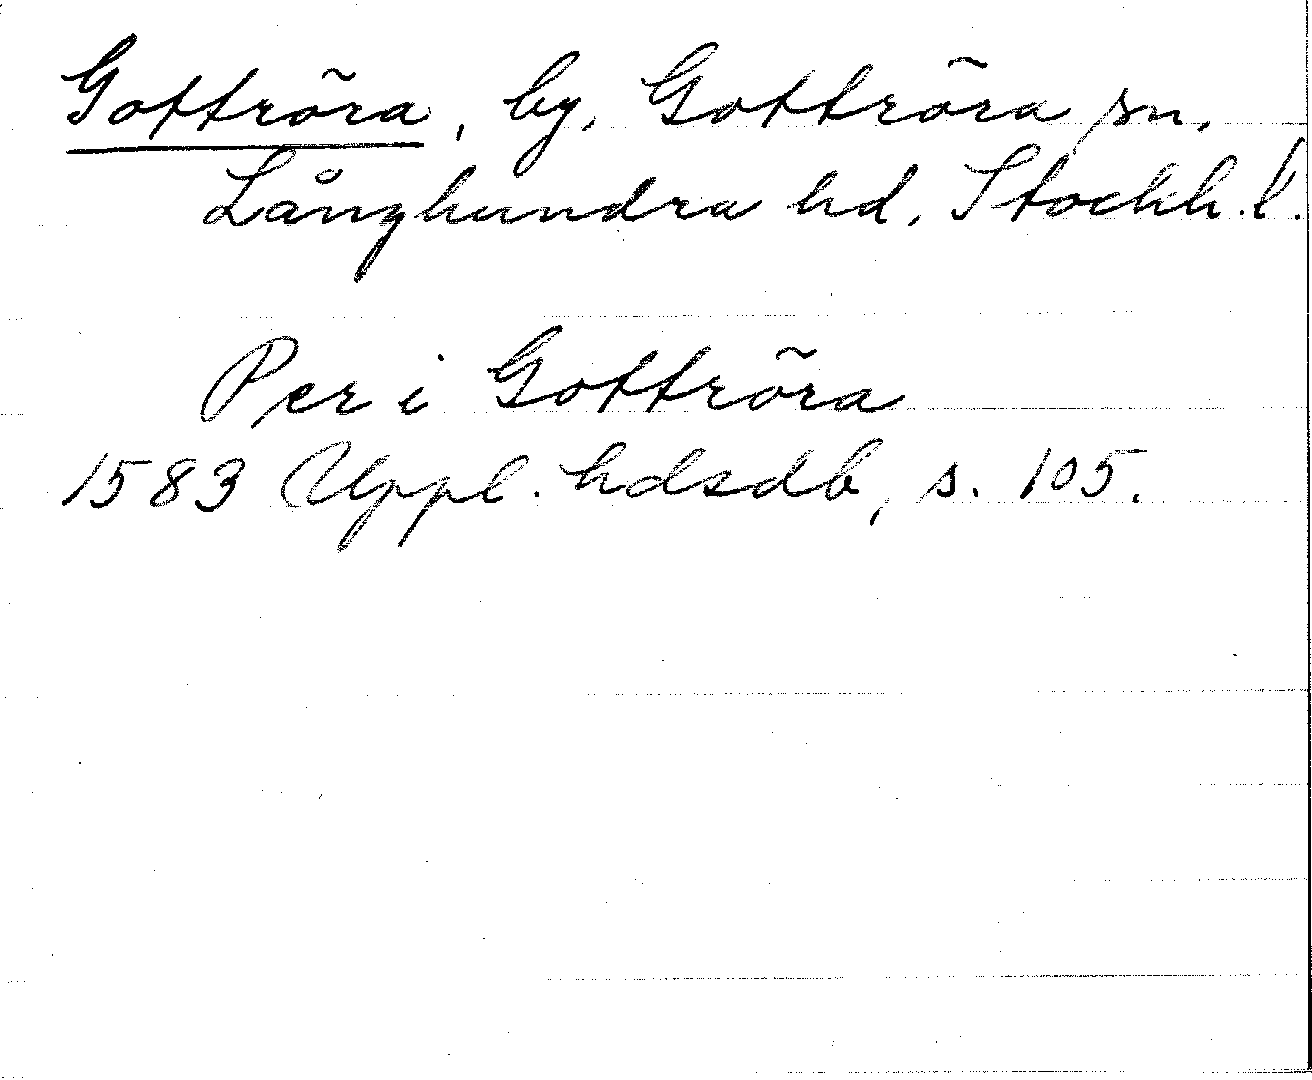 Gottröra, by, Gottröra sn.
Långhundra hd. Stockh. l.
Per i Gottröra
1583 Uppl. hdsdb, s. 105.